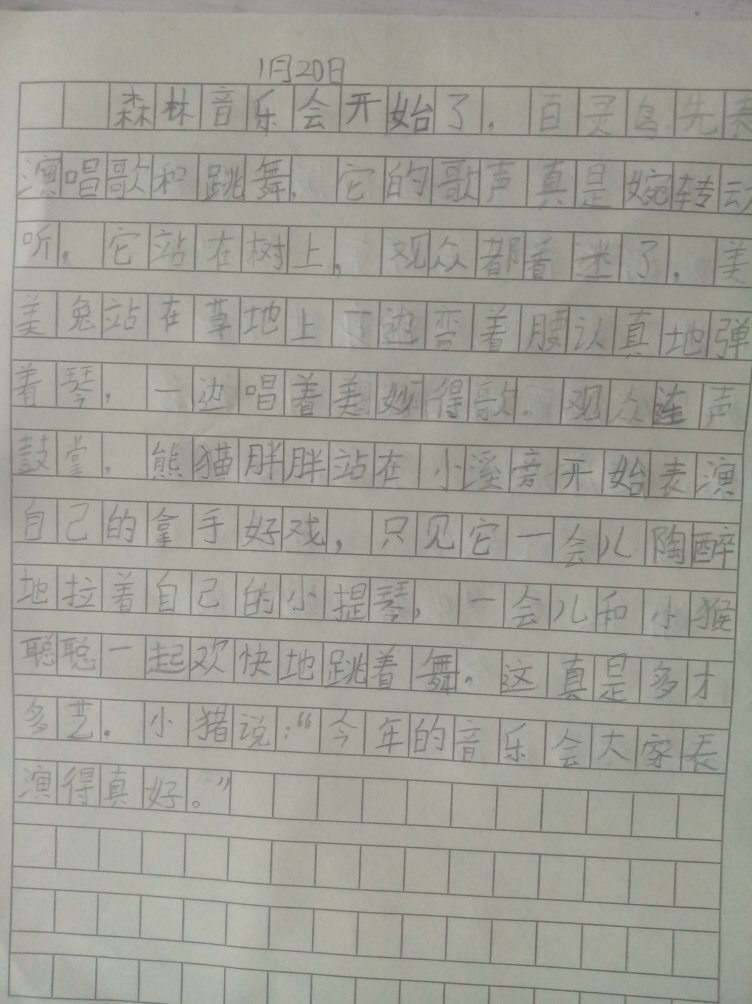 1月20日
森林音乐会开始了，百灵鸟先表
演唱歌和跳舞，它的歌声真是婉转动
听，它站在树上，观众都看迷了，美
美兔站在草地上一边弯着腰认真地弹
着琴，一边唱着美妙得歌。观众连声
鼓掌，熊猫胖胖站在小溪旁开始表演
自己的拿手好戏，只见它一会儿陶醉
地拉着自己的小提琴，一会儿和小猴
聪聪一起欢快地跳着舞。这真是多才
多艺。小猪说：“今年的音乐会大家表
演得真好。”